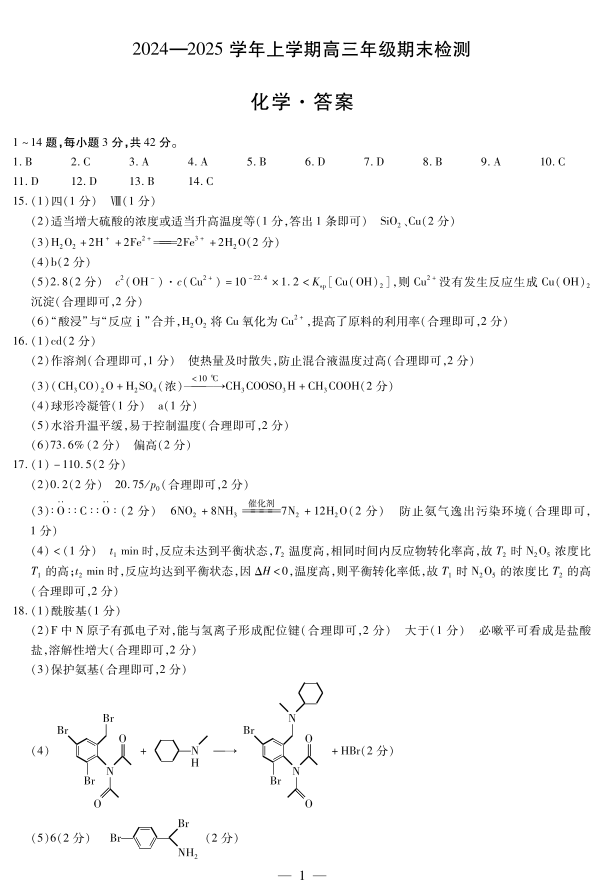 2024—2025 学年上学期高三年级期末检测
化学·答案
1~14 题,每小题 3 分,共 42 分。
1. B 2. C 3. A 4. A 5. B 6. D 7. D 8. B 9. A 10. C
11. D 12. D 13. B 14. C
15. (1)四(1 分) Ⅷ(1 分)
(2)适当增大硫酸的浓度或适当升高温度等(1 分,答出 1 条即可) SiO₂、Cu(2 分)
(3)H₂O₂ +2H⁺ +2Fe²⁺══2Fe³⁺ +2H₂O(2 分)
(4)b(2 分)
(5)2.8(2 分) c²(OH⁻)·c(Cu²⁺)=10⁻²²·⁴×1.2<Kₛₚ[Cu(OH)₂],则 Cu²⁺没有发生反应生成 Cu(OH)₂
沉淀(合理即可,2 分)
(6)“酸浸”与“反应ⅰ”合并,H₂O₂ 将 Cu 氧化为 Cu²⁺,提高了原料的利用率(合理即可,2 分)
16. (1)cd(2 分)
(2)作溶剂(合理即可,1 分) 使热量及时散失,防止混合液温度过高(合理即可,2 分)
(3)(CH₃CO)₂O+H₂SO₄(浓) <10 ℃→ CH₃COOSO₃H+CH₃COOH(2 分)
(4)球形冷凝管(1 分) a(1 分)
(5)水浴升温平缓,易于控制温度(合理即可,2 分)
(6)73.6%(2 分) 偏高(2 分)
17. (1)-110.5(2 分)
(2)0.2(2 分) 20.75/p₀(合理即可,2 分)
(3):Ö::C::Ö:(2 分) 6NO₂ +8NH₃ 催化剂══ 7N₂ +12H₂O(2 分) 防止氨气逸出污染环境(合理即可,
1 分)
(4)<(1 分) t₁ min 时,反应未达到平衡状态,T₂ 温度高,相同时间内反应物转化率高,故 T₂ 时 N₂O₅ 浓度比
T₁ 的高;t₂ min 时,反应均达到平衡状态,因 ΔH<0,温度高,则平衡转化率低,故 T₁ 时 N₂O₅ 的浓度比 T₂ 的高
(合理即可,2 分)
18. (1)酰胺基(1 分)
(2)F 中 N 原子有孤电子对,能与氢离子形成配位键(合理即可,2 分) 大于(1 分) 必嗽平可看成是盐酸
盐,溶解性增大(合理即可,2 分)
(3)保护氨基(合理即可,2 分)
(4) Br Br O N Br O + N H → N Br O N Br O +HBr(2 分)
(5)6(2 分) Br Br NH₂ (2 分)
— 1 —